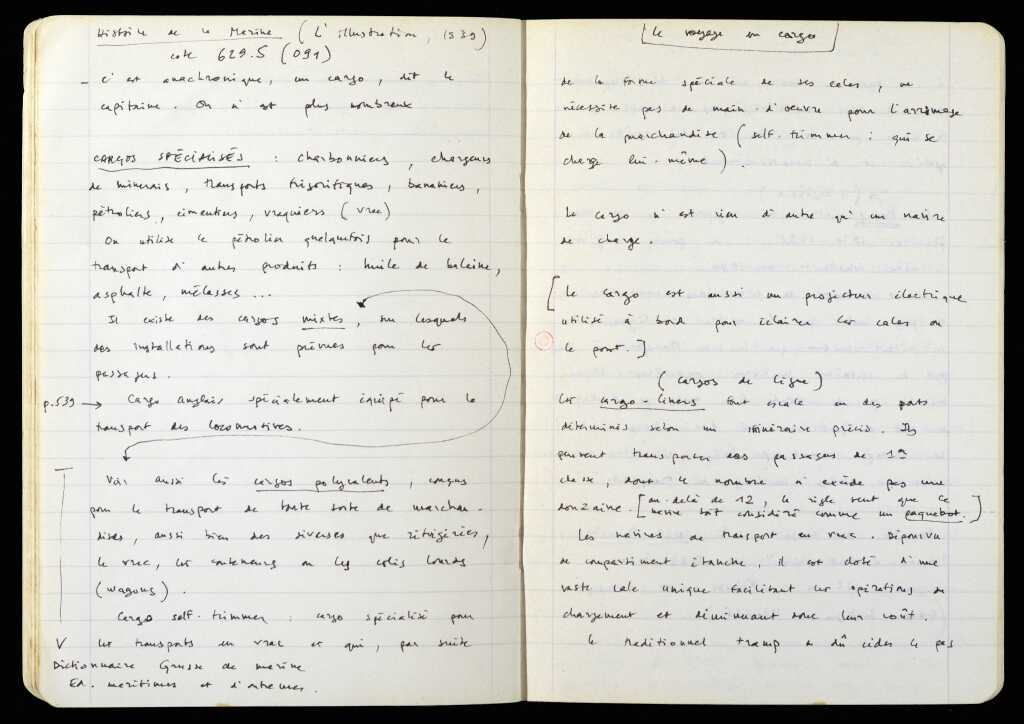 Histoire de la Marine (L'illustration, 1939)
cote 629.5 (091)
_ c'est anachronique, un cargo, dit le
capitaine. On n'est plus nombreux
CARGOS SPÉCIALISÉS : charbonniers, chargeurs
de minerais, transports frigorifiques, bananiers,
pétroliers, cimentiers, vraquiers (vrac)
On utilise le pétrolier quelquefois pour le
transport d'autres produits : huile de baleine,
asphalte, mélasses ...
Il existe des cargos mixtes, sur lesquels
des installations sont prévues pour les
passagers.
p.539 → Cargo anglais spécialement équipé pour le
transport des locomotives.
Voir aussi les cargos polyvalents, conçus
pour le transport de toute sorte de marchan-
dises, aussi bien des diverses que réfrigérées,
le vrac, les conteneurs ou les colis lourds
(wagons).
Cargo self-trimmer : cargo spécialisé pour
V les transports en vrac et qui, par suite
Dictionnaire Gruss de marine
Ed. maritimes et d'outremer.
Le voyage en cargo
de la forme spéciale de ses cales, ne
nécessite pas de main-d'oeuvre pour l'arrimage
de la marchandise (self-trimmer : qui se
charge lui-même).
Le cargo n'est rien d'autre qu'un navire
de charge.
[Le cargo est aussi un projecteur électrique
utilisé à bord pour éclairer les cales ou
le pont.]
(cargos de ligne)
Les cargo-liners font escale en des ports
déterminés selon un itinéraire précis. Ils
peuvent transporter des passagers de 1re
classe, dont le nombre n'excède pas une
douzaine. [au-delà de 12, la règle veut que ce
navire soit considéré comme un paquebot.]
Les navires de transport en vrac. Dépourvu
de compartiment étanche, il est doté d'une
vaste cale unique facilitant les opérations de
chargement et diminuant donc leur coût.
Le traditionnel tramp a dû céder le pas